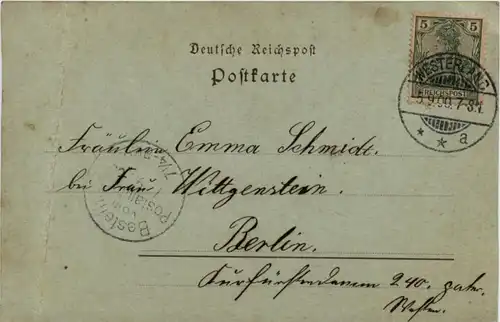 5 5
Deutsche Reichspost
Postkarte
WESTERLAND
REICHSPOST
5.9.00.7-8
* * a
Fräulein Emma Schmidt.
bei Frau Wittgenstein.
Bestellt
vom
Postamte
Berlin.
Kurfürstendamm 240. parter.
Westen.